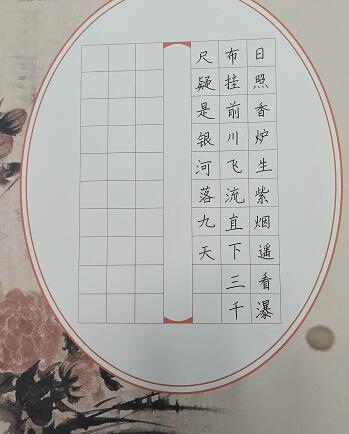 日照香炉生紫烟遥看瀑
布挂前川飞流直下三千
尺疑是银河落九天